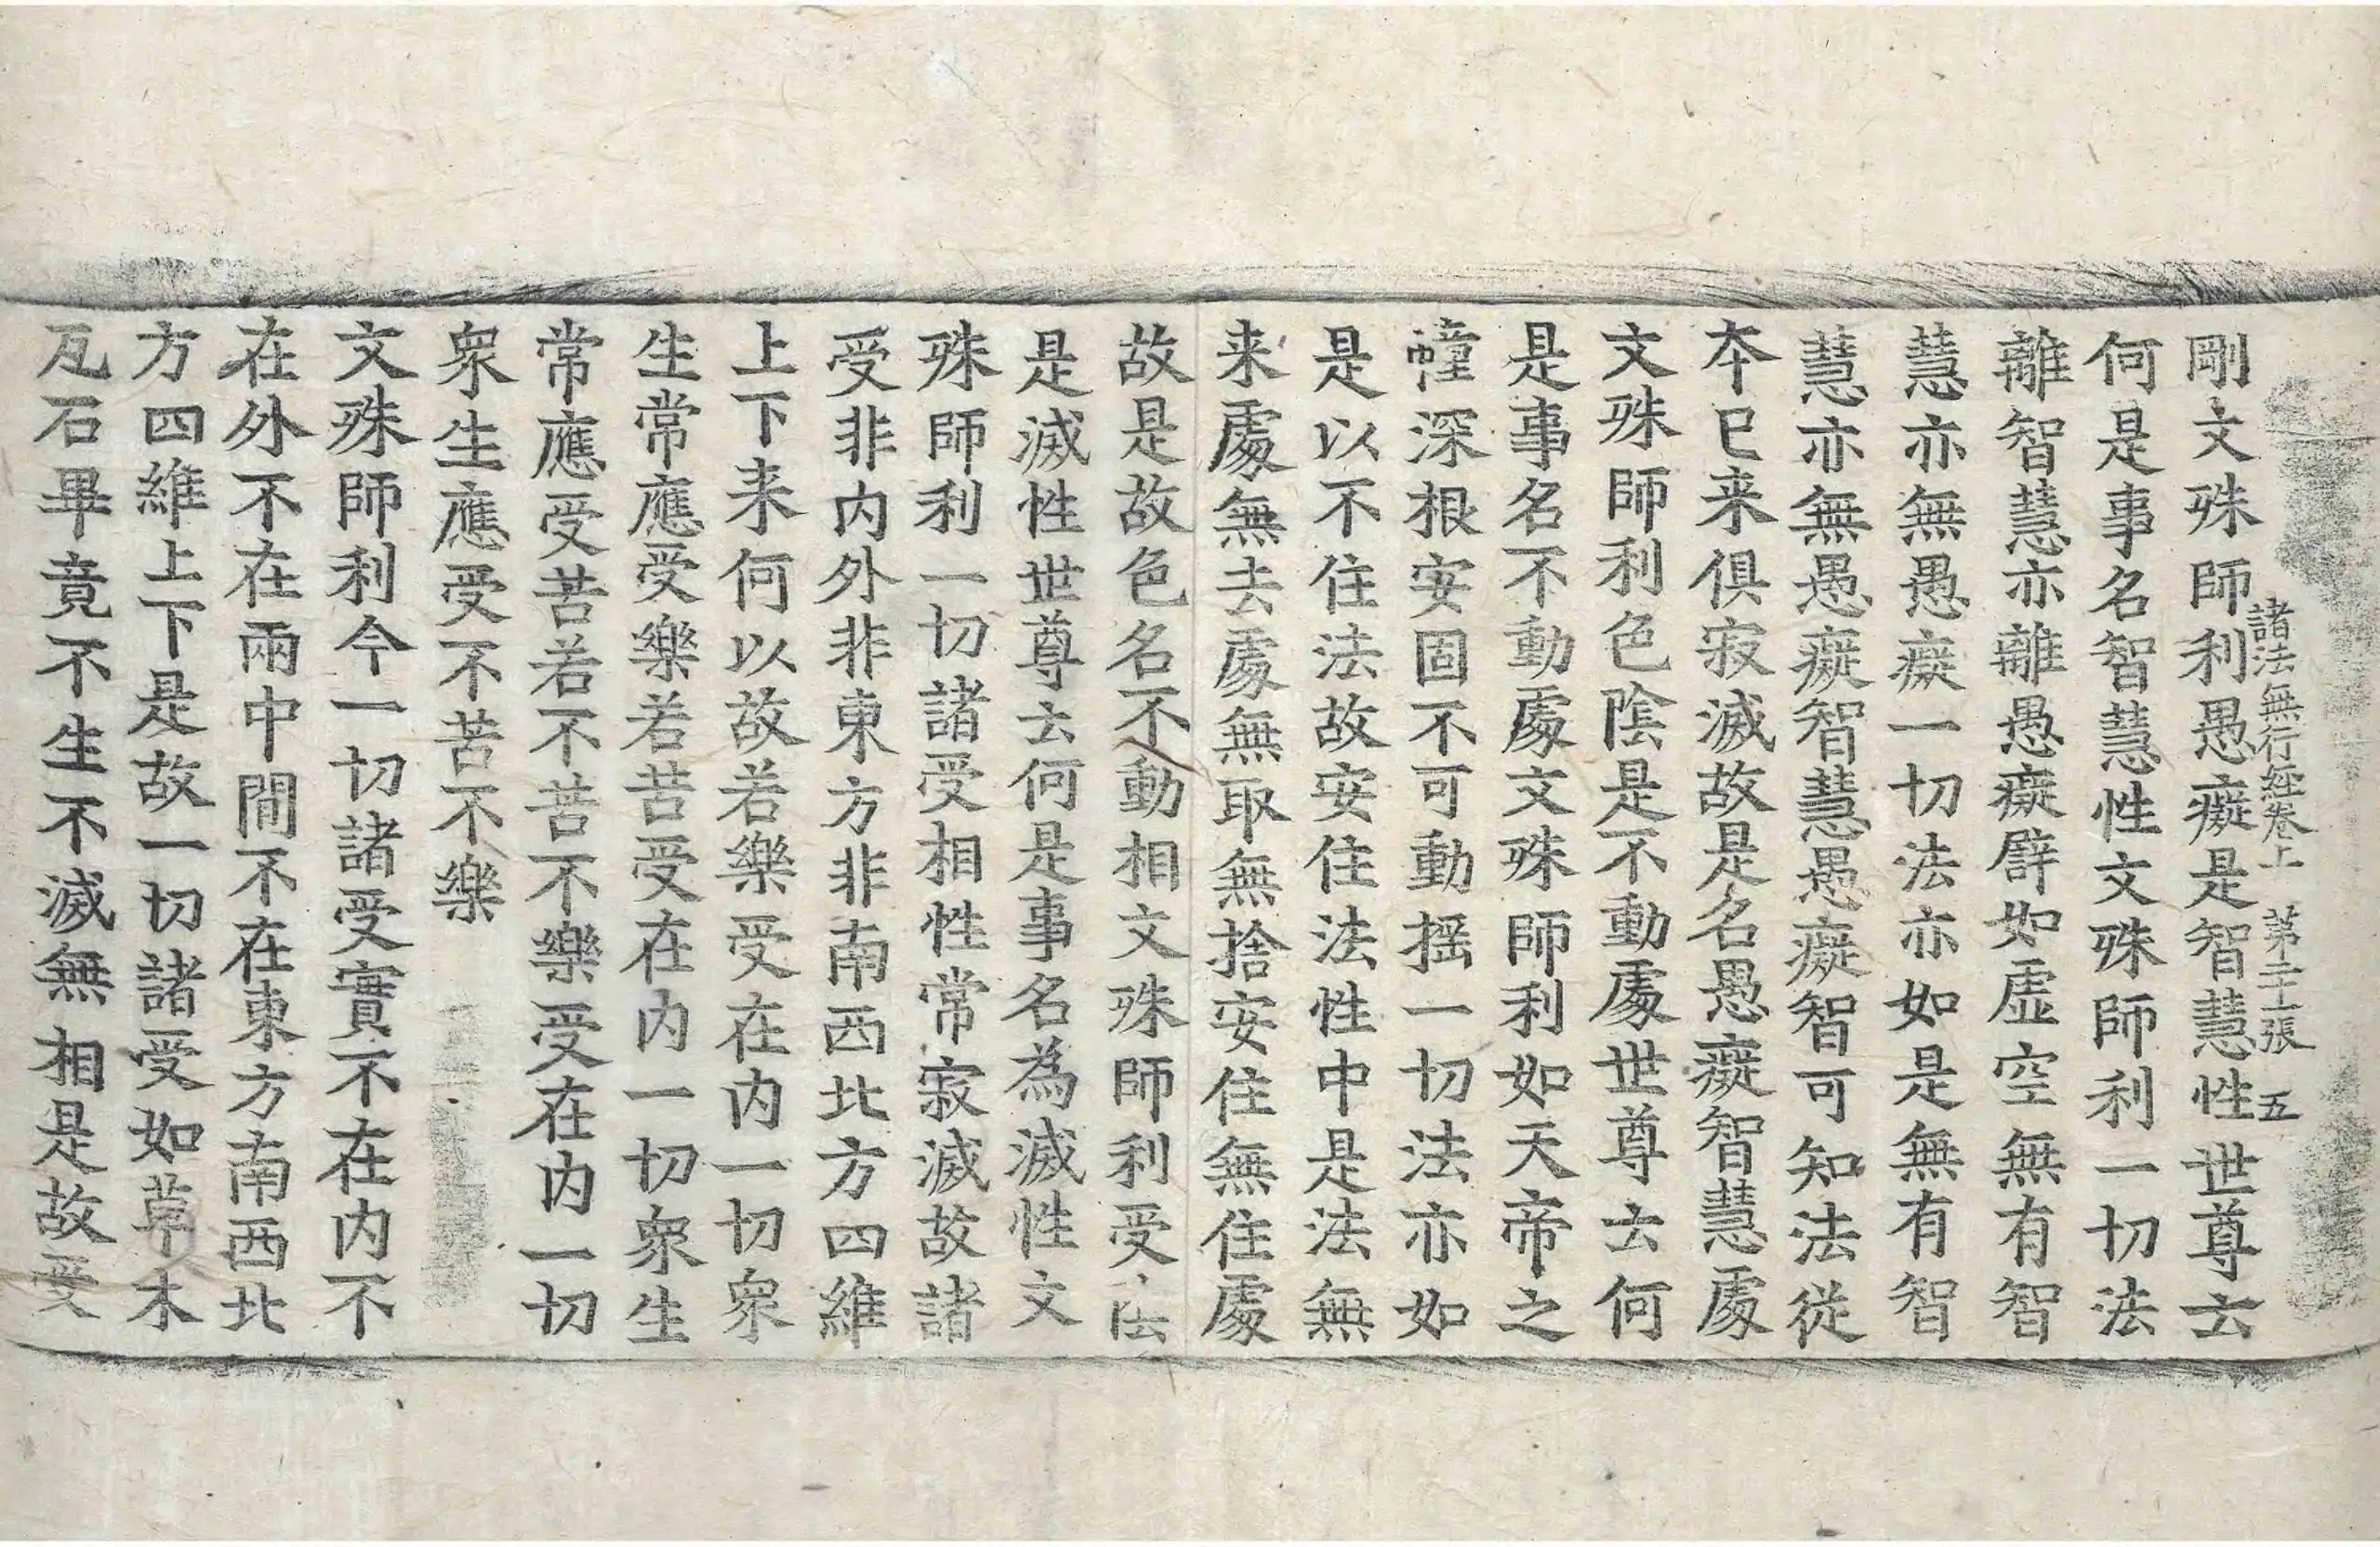 諸法無行經卷上 第二十一張 五
剛文殊師利愚癡是智慧性世尊云
何是事名智慧性文殊師利一切法
離智慧亦離愚癡辟如虛空無有智
慧亦無愚癡一切法亦如是無有智
慧亦無愚癡智慧愚癡智可知法從
本已来俱寂滅故是名愚癡智慧處
文殊師利色陰是不動處世尊云何
是事名不動處文殊師利如天帝之
幢深根安固不可動摇一切法亦如
是以不住法故安住法性中是法無
来處無去處無取無捨安住無住處
故是故色名不動相文殊師利受陰
是滅性世尊云何是事名為滅性文
殊師利一切諸受相性常寂滅故諸
受非内外非東方非南西北方四維
上下来何以故若樂受在内一切衆
生常應受樂若苦受在内一切衆生
常應受苦若不苦不樂受在内一切
衆生應受不苦不樂
文殊師利今一切諸受實不在内不
在外不在兩中間不在東方南西北
方四維上下是故一切諸受如草木
瓦石畢竟不生不滅無相是故受